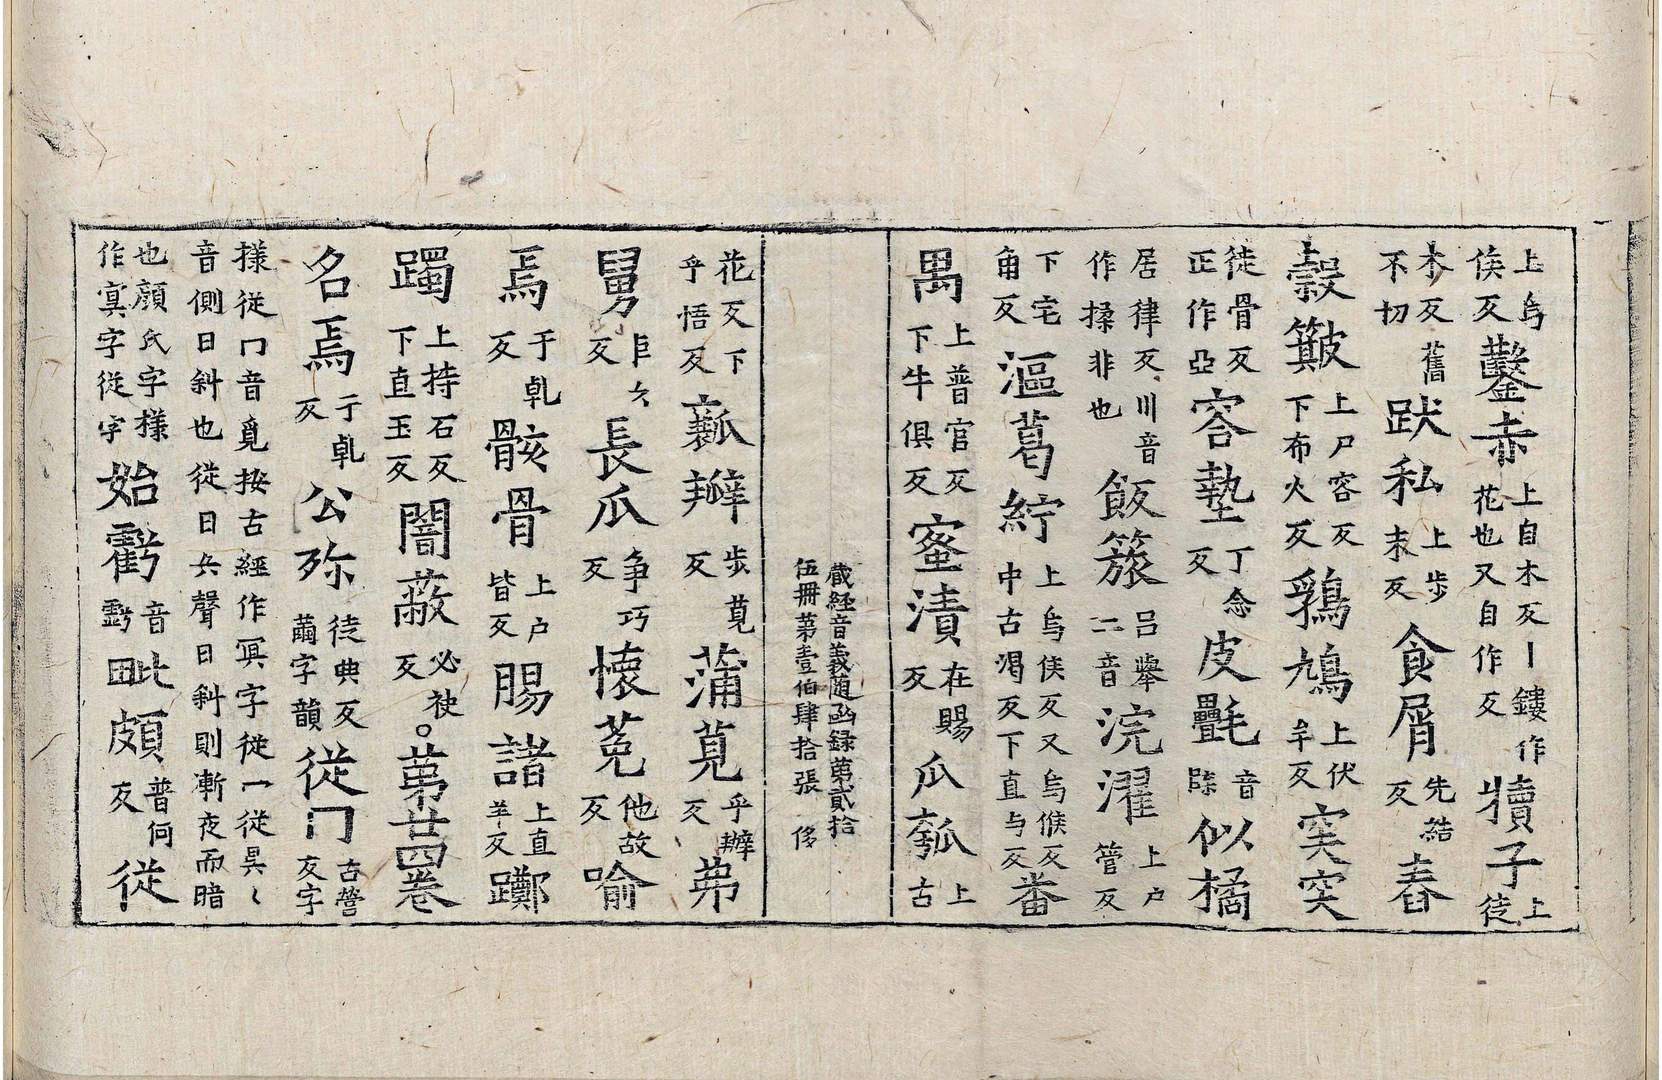 上烏侯反鑿赤上自木反丨鏤作花也又自作反犢子上徒
木反舊不切趺私上步末反貪屑先結反舂
縠簸上尸容反下布火反鶏鳩上伏牟反突突
徒骨反正作亞容墊丁念反皮疊毛音除似橘
居律反川音作揉非也飯簇吕舉二音浣濯上户管反
下宅角反漚葛紵上烏侯反又烏候反中古渴反下直与反番
禺上普官反下牛俱反蜜漬在賜反瓜瓠上古
藏經音義随函録苐貳拾伍冊苐壹伯肆拾張 侈
花反下乎悟反瓤瓣步莧反蒲莧乎辦反苐
舅巨久反長瓜争巧反懷菟他故反喻
焉于乹反骸骨上户皆反賜諸上直羊反躑
躅上持石反下直玉反闇蔽必袂反。苐廿四卷
名焉于乹反公弥徒典反繭字韻從冂古營反字
様從冖音覓按古經作冥字從一從具〻音側日斜也從日兵聲日斜則漸夜而暗
也顔氏字様作㝠字從字始虧音虧毗頗普何反從